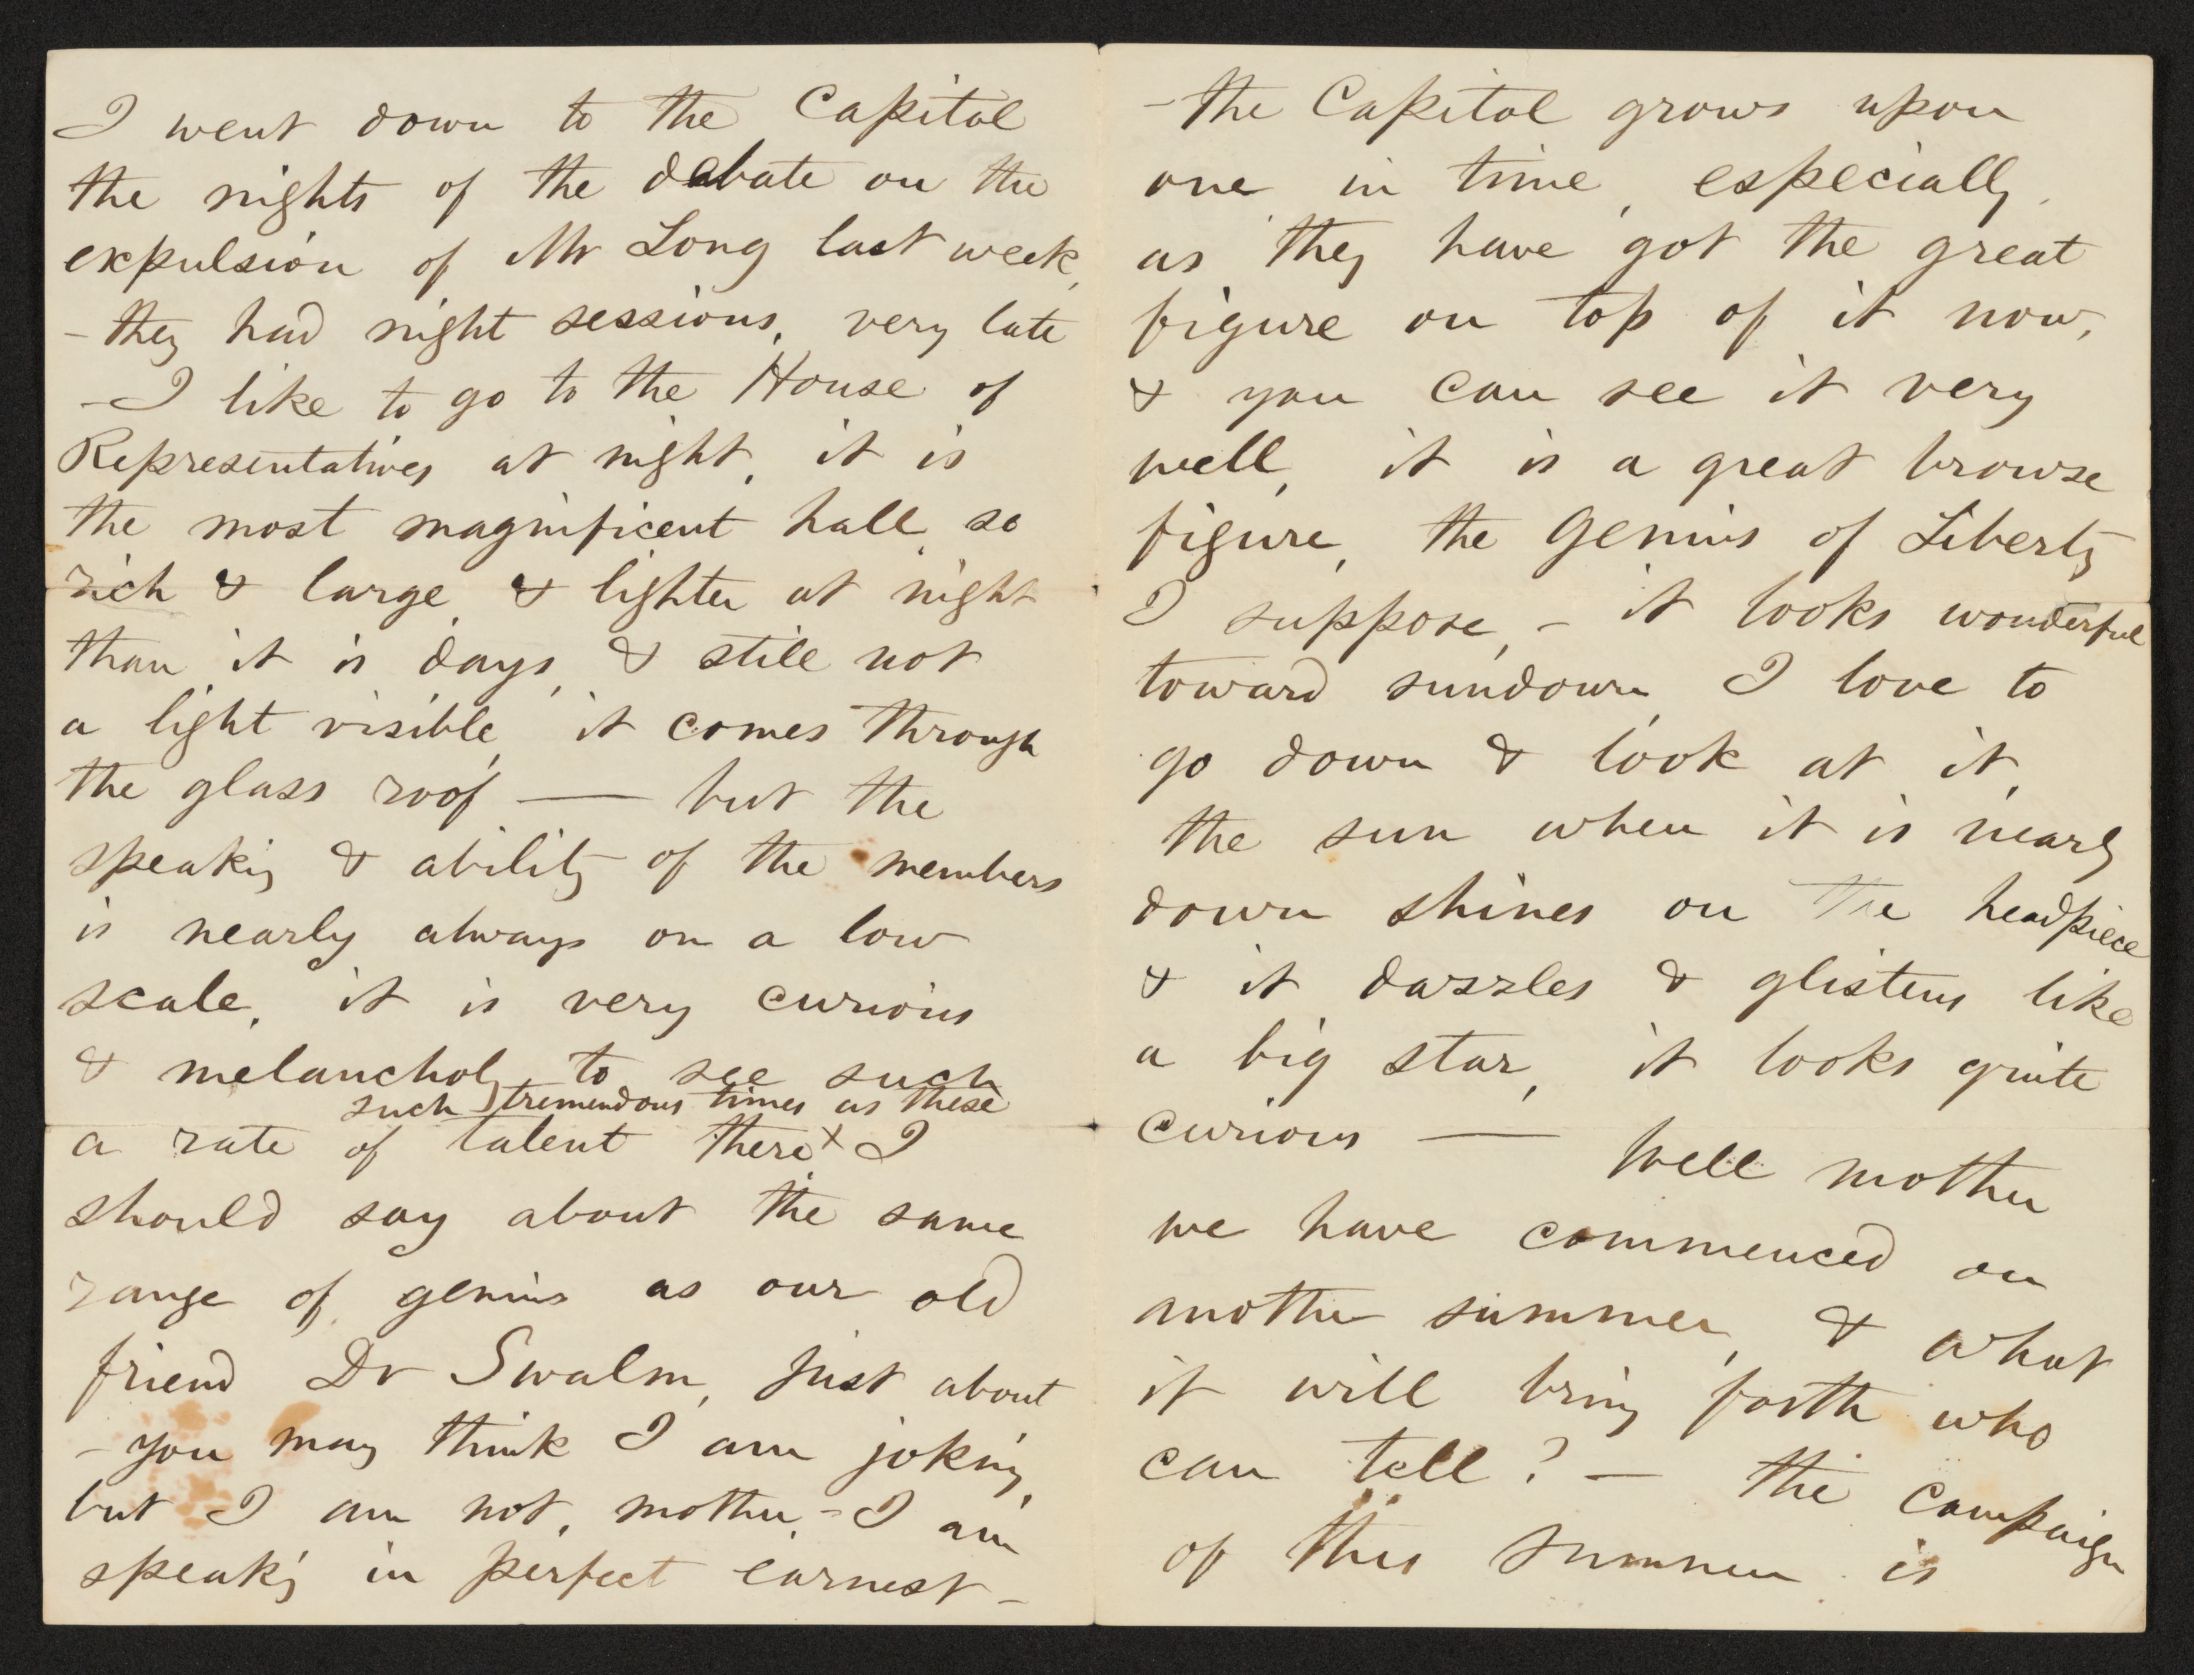 I went down to the Capitol
the nights of the debate on the
expulsion of Mr Long last week,
- they had night sessions, very late
- I like to go to the House of
Representatives at night, it is
the most magnificent hall, so
rich & large, & lighter at night
than it is days, & still not
a light visible, it comes through
the glass roof — but the
speaking & ability of the members
is nearly always on a low
scale, it is very curious
& melancholy to see such
such tremendous times as these
a rate of talent there x I
should say about the same
range of genius as our old
friend Dr Swalm, just about
- you may think I am joking,
but I am not, mother, - I am
speaking in perfect earnest -
- the Capitol grows upon
one in time, especially
as they have got the great
figure on top of it now,
& you can see it very
well, it is a great bronze
figure, the Genius of Liberty
I suppose, - it looks wonderful
toward sundown, I love to
go down & look at it,
the sun when it is nearly
down shines on the headpiece
& it dazzles & glistens like
a big star, it looks quite
curious — Well mother
we have commenced on
another summer, & what
it will bring forth who
can tell? - the campaign
of this summer is